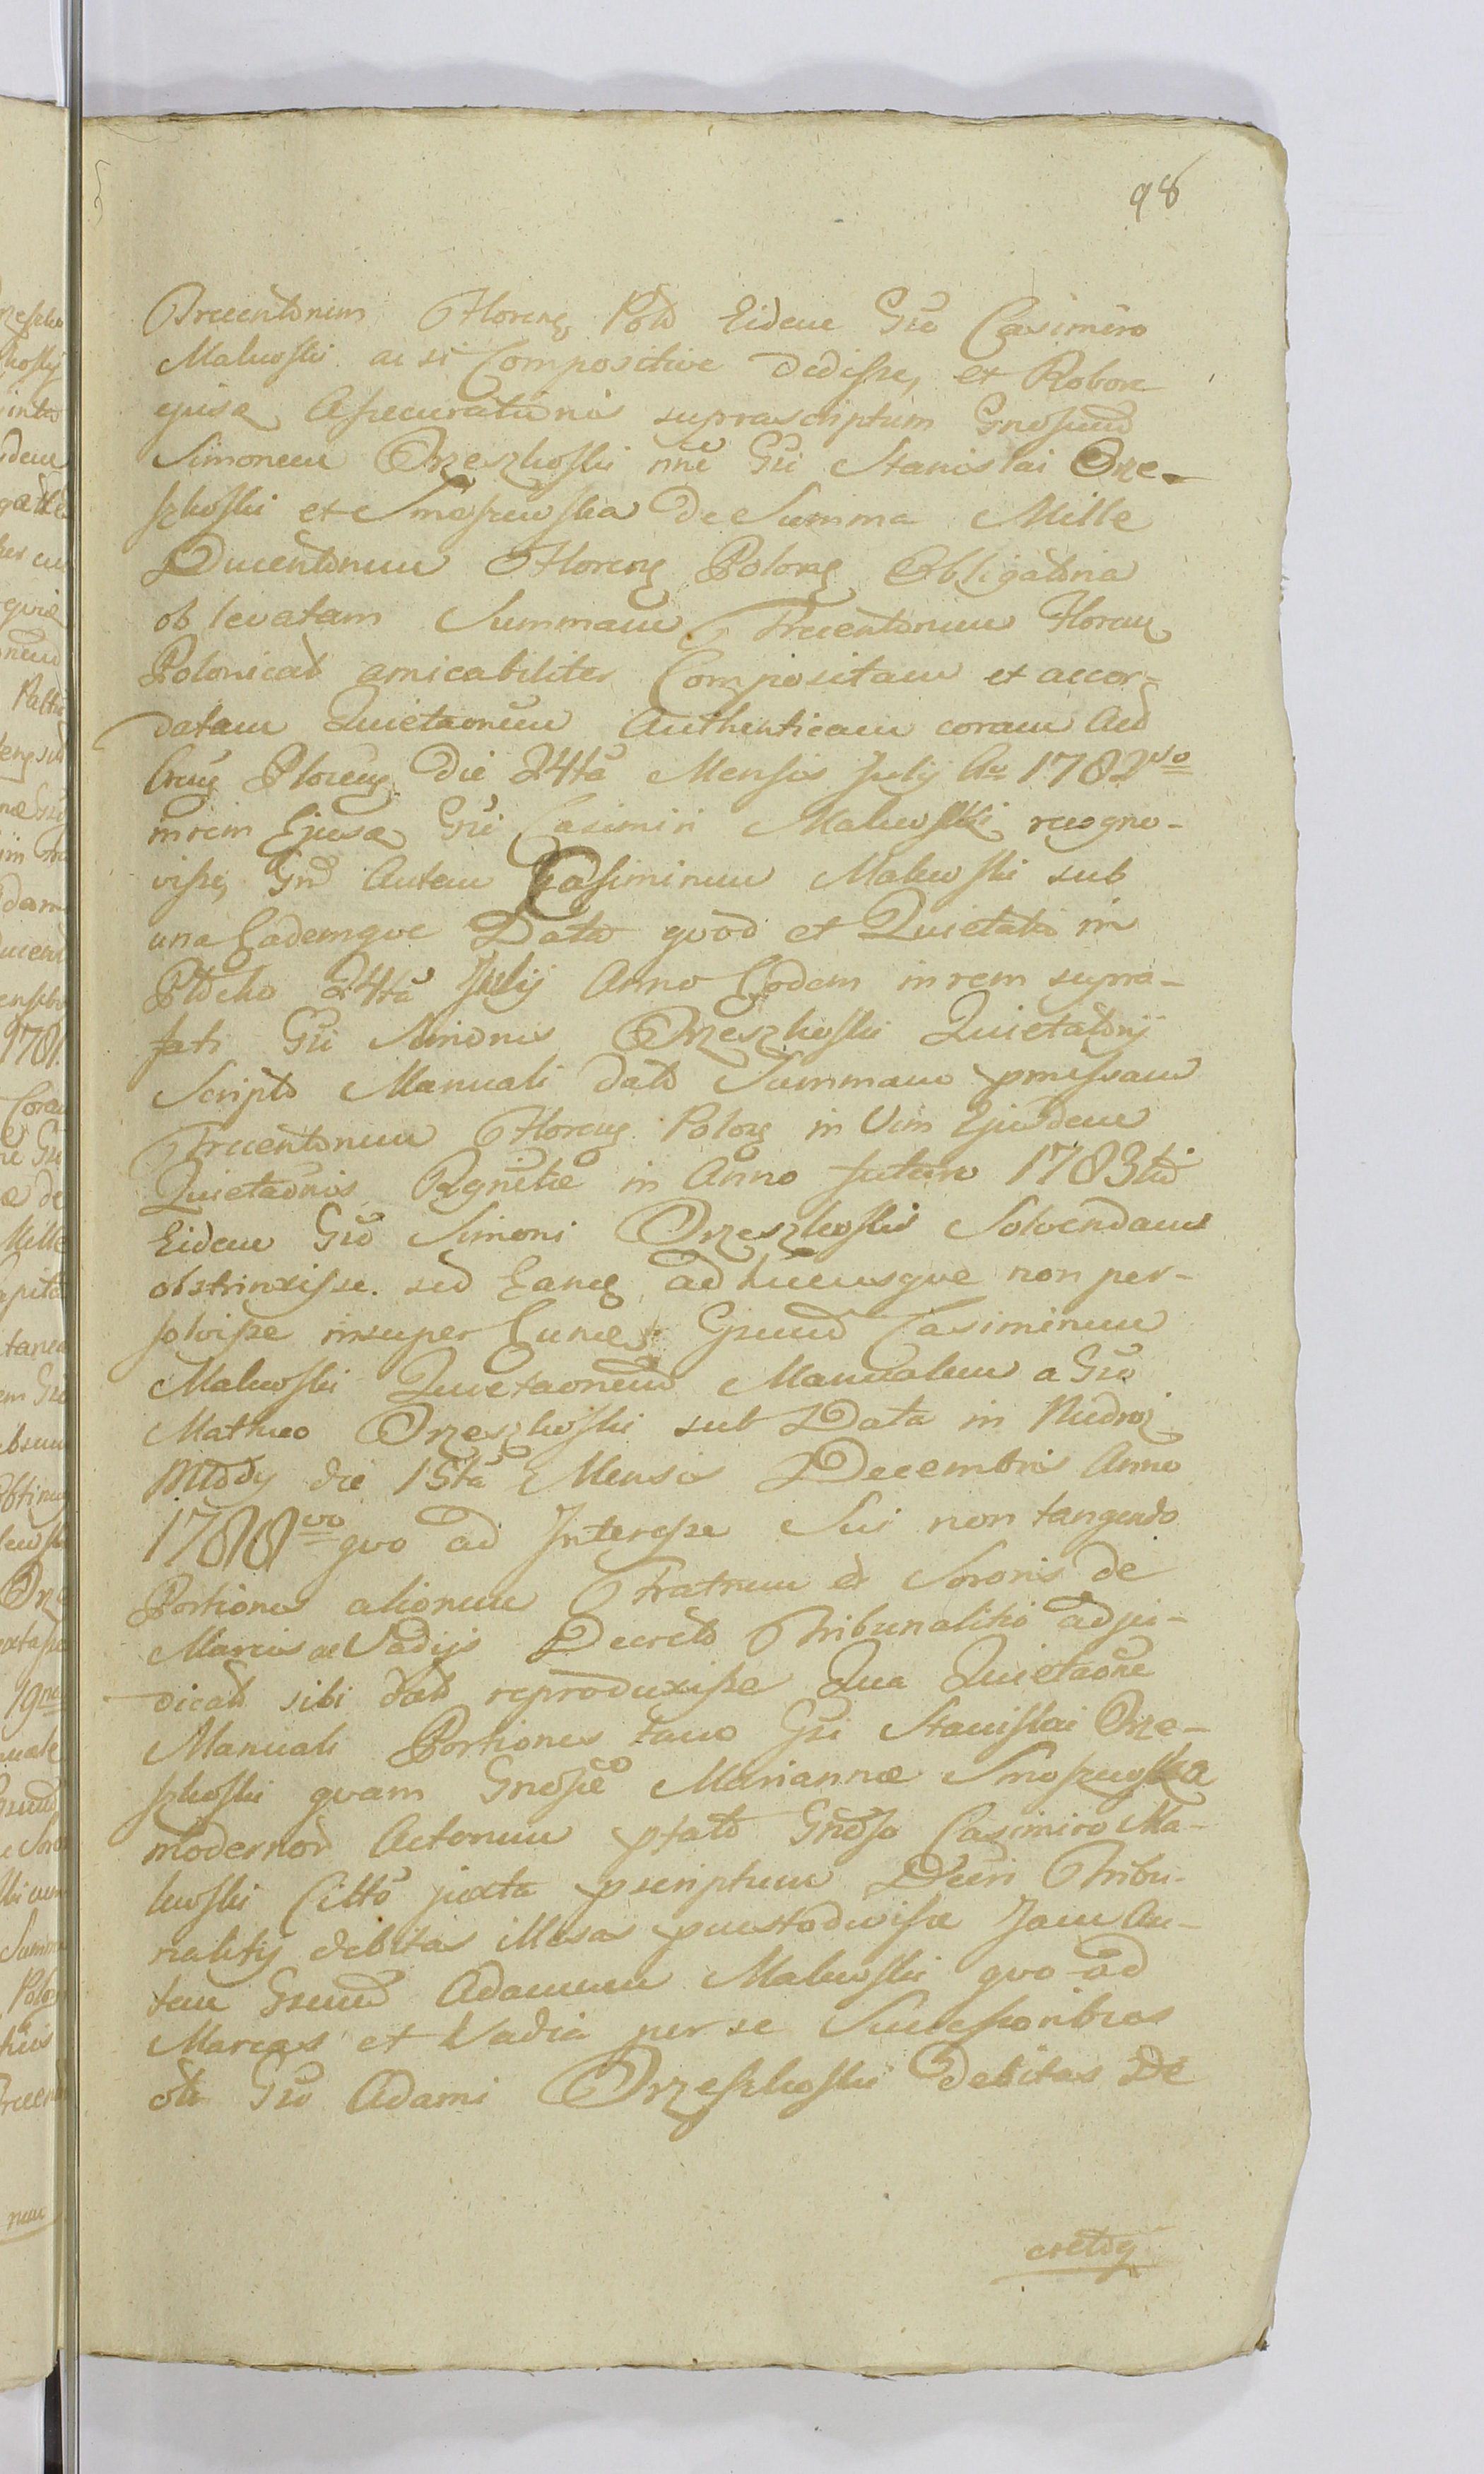 98
Trecentorum Floreng Pold Eidem Gso Casimiro
Malewski ac si Compositive dedisse, et Robore
ejusq Assecurationis suprascriptum Gnosum
Simonem Orzeszkoski nne Gsi Stanislai Orze-
szkoski et Smoszewska de Summa Mille
Ducentorum Floreng Polong Obligatoria
ob levatam Summam Trecentorum Floreng
Polonicał amicabiliter Compositam et accor-
datam Quietaonem Authenticam coram Act
Crens Plocens die 24ta Mensis July Ao 1782do
in rem Ejusq Gsi Casimiri Malewski recogno-
visse, Gnd Autem Casimirum Malewski sub
una Eademque Data quod et Quietatio in
Płocko 24ta July Anno Eodem in rem supra-
fati Gsi Simonis Orzeszkoski Quietatory
Scripto Manuali dato Summam pmissam
Trecentorum Floreng Polong in Vim Ejusdem
Quietaonis Rgnitæ in Anno futuro 1783tio
Eidem Gso Simoni Orzeszkoski Solvendam
obstrinxisse. sed Eanq adhucusque non per-
solvisse insuper Eunq Gsum Casimirum
Malewski Quietaonem Manualem a Gso
Matheo Orzeszkoski sub Data in
die 15ta Mensis Decembris Anno
1788vo quo ad Interesse Sui non tangendo
Portiones aliorum Fratrum et Sororis de
Marcis ac Vadijs Decreto Tribunalitio adju-
dicatt sibi datt reproduxisse Qua Quietaone
Manuali Portiones tam Gsi Stanislai Orze-
szkoski quam Gnosæ Mariannæ Smoszewska
modernor Actorum pfato Gnoso Casimiro Ma-
lewski Citto juxta pscriptum Decri Tribu-
nalitij debitas illæsas Jam Au-
tem Gsum Adamum Malewski quo ad
Marcas et Vadia per se Successoribus
olim Gso Adami Orzeszkoski debitas De
cretoq